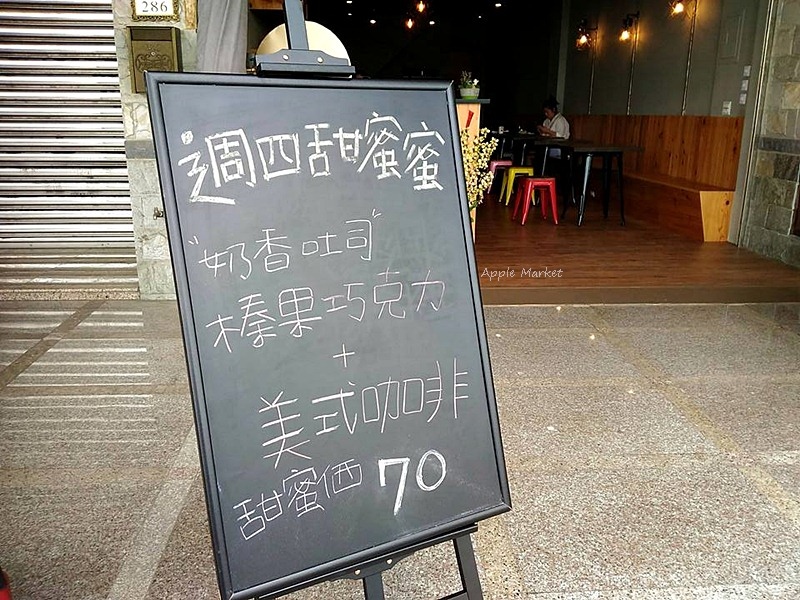 286
週四甜蜜蜜
"奶香吐司"
榛果巧克力
+
美式咖啡
甜蜜価 70
Apple Market